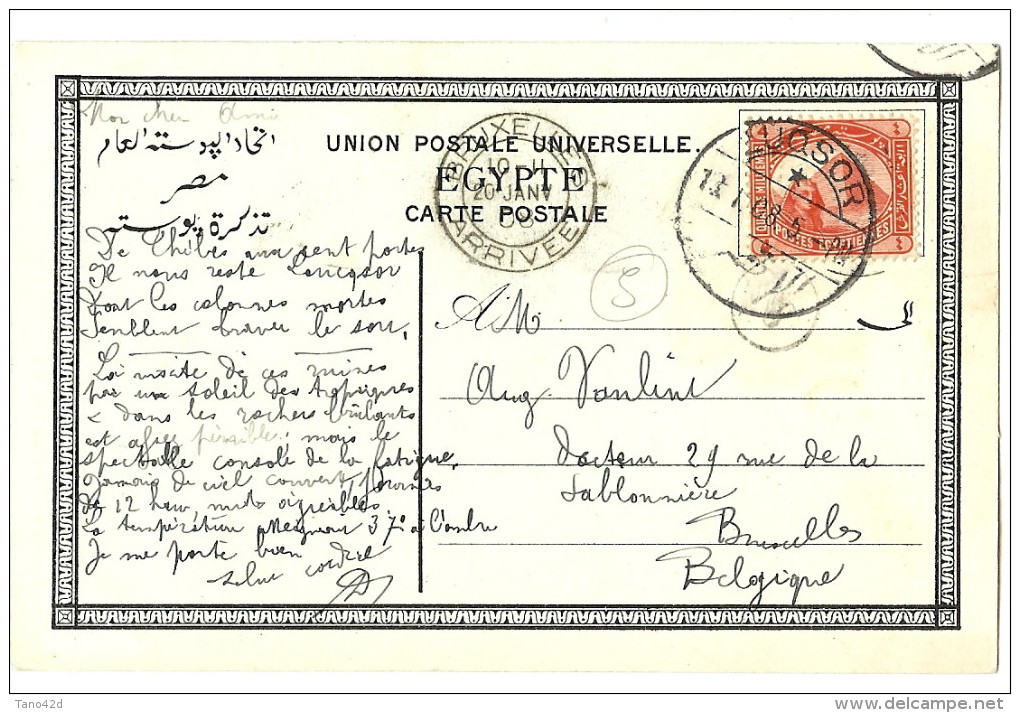 Mon cher Ami
اتحاد البوسته العام
مصر
تذكرة بوسته
UNION POSTALE UNIVERSELLE.
EGYPTE
CARTE POSTALE
BRUXELLES
10-11
20 JANV
08
ARRIVÉE
LUQSOR
POSTES EGYPTIENNES
De Thèbes aux cent portes
Il nous reste Loucqsor
Dont les colonnes mortes
Semblent braver le sort,
La visite de ces ruines
par un soleil des tropiques
& dans les rochers brûlants
est assez pénible, mais le
spectacle console de la fatigue,
Jamais de ciel couvert, journées
de 12 heur, nuits agréables.
La température 37° à l'ombre
Je me porte bien
Salue cordial
5
A M.
Aug. Vanlint
Docteur 29 rue de la
Sablonnière
Bruxelles
Belgique
Tano42d
delcampe.net